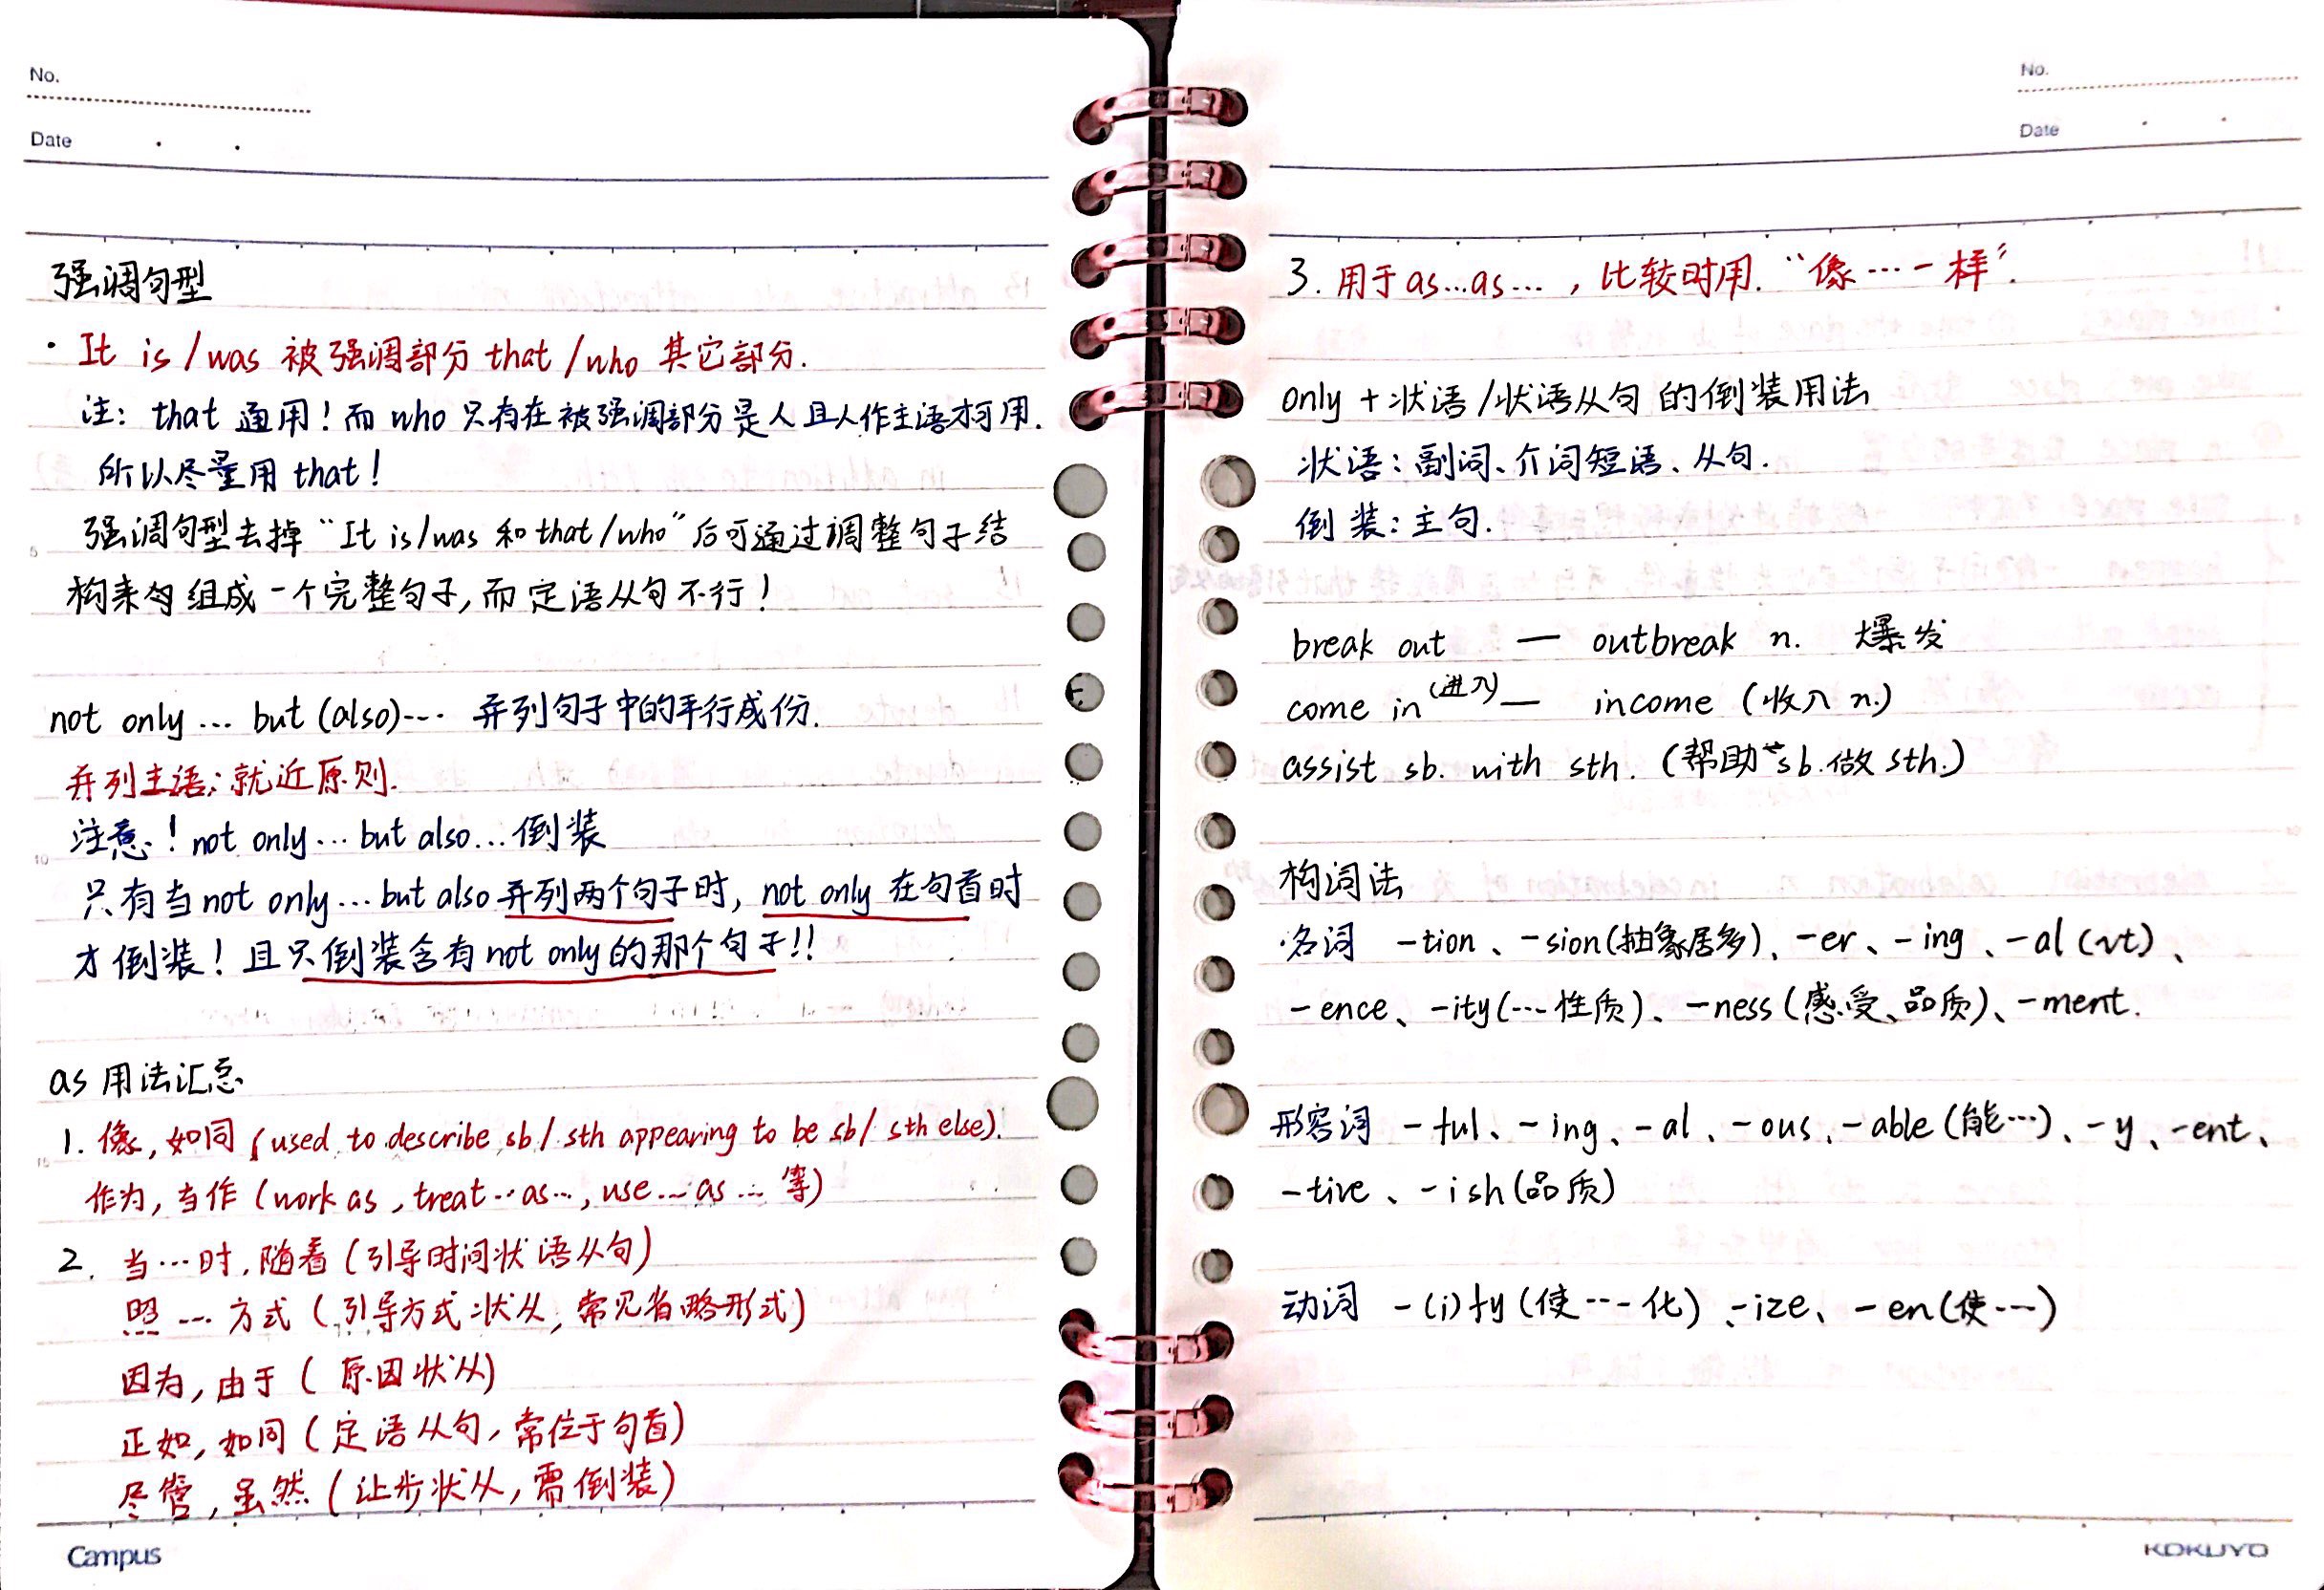 No.
Date
强调句型
· It is / was 被强调部分 that / who 其它部分.
注: that 通用! 而 who 只有在被强调部分是人且人作主语才可用.
所以尽量用 that!
强调句型去掉“It is/was 和 that/who”后可通过调整句子结
构来组成一个完整句子, 而定语从句不行!
not only … but (also)… 并列句子中的平行成份.
并列主语: 就近原则.
注意! not only … but also … 倒装
只有当 not only … but also 并列两个句子时, not only 在句首时
才倒装! 且只倒装含有 not only 的那个句子!!
as 用法汇总
1. 像, 如同 (used to describe sb / sth appearing to be sb / sth else).
作为, 当作 (work as, treat … as …, use … as … 等)
2. 当…时, 随着 (引导时间状语从句)
照 … 方式 (引导方式状从, 常见省略形式)
因为, 由于 (原因状从)
正如, 如同 (定语从句, 常位于句首)
尽管, 虽然 (让步状从, 需倒装)
Campus
No.
Date
3. 用于 as…as…, 比较时用. “像…一样”.
only + 状语 / 状语从句 的倒装用法
状语: 副词、介词短语、从句.
倒装: 主句.
break out — outbreak n. 爆发
come in (进入) — income (收入 n.)
assist sb. with sth. (帮助 sb. 做 sth.)
构词法
名词 -tion、-sion(抽象居多)、-er、-ing、-al (vt)、
-ence、-ity(…性质)、-ness(感受、品质)、-ment.
形容词 -ful、-ing、-al、-ous、-able (能…)、-y、-ent、
-tive、-ish(品质)
动词 -(i)fy (使…化)、-ize、-en(使…)
KOKUYO